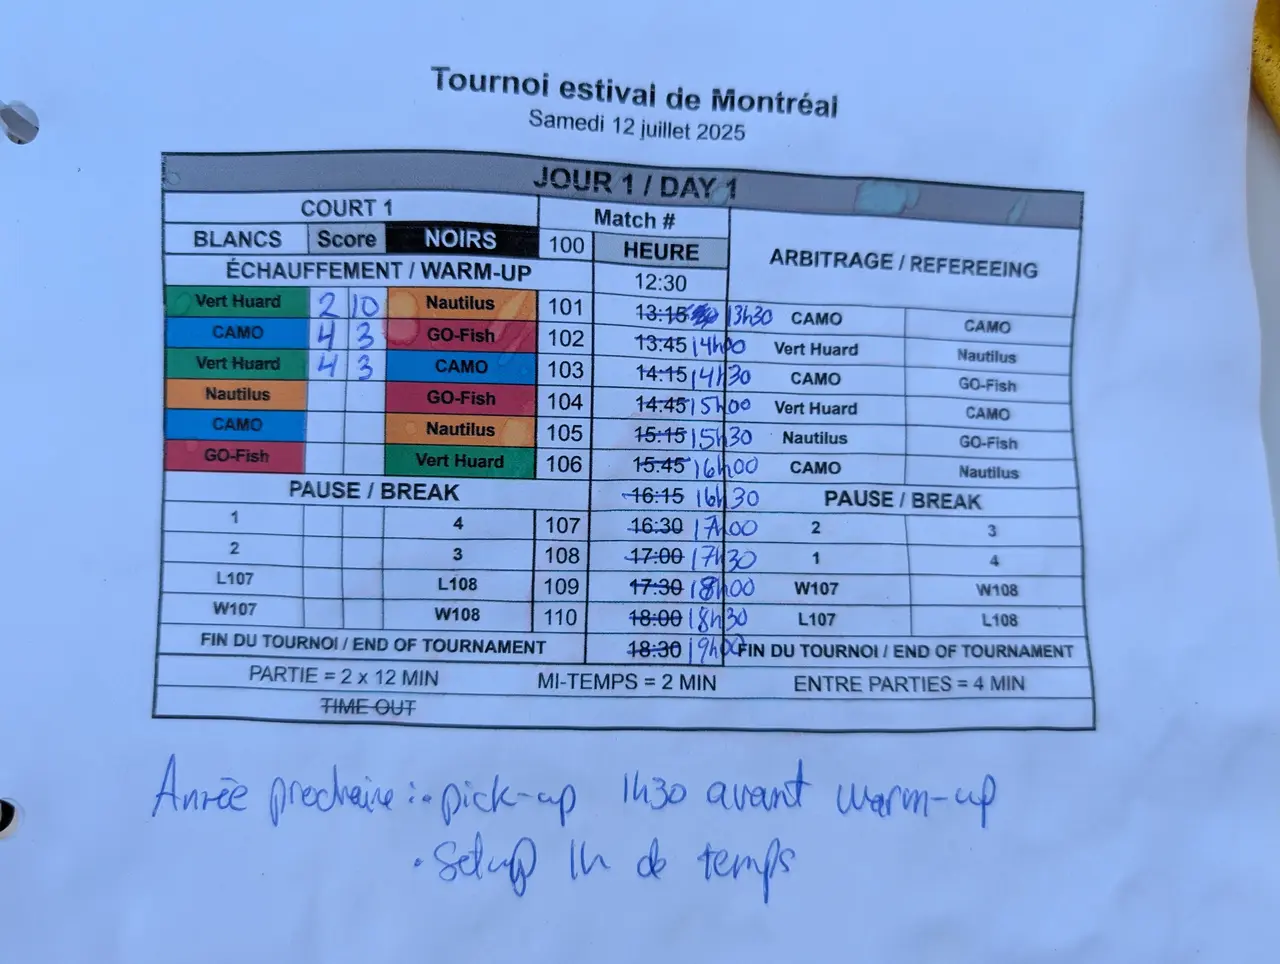 Tournoi estival de Montréal
Samedi 12 juillet 2025
JOUR 1 / DAY 1
COURT 1 Match # ARBITRAGE / REFEREEING
BLANCS Score NOIRS 100 HEURE
ÉCHAUFFEMENT / WARM-UP 12:30
Vert Huard 2 10 Nautilus 101 13:15 13h30 CAMO CAMO
CAMO 4 3 GO-Fish 102 13:45 14h00 Vert Huard Nautilus
Vert Huard 4 3 CAMO 103 14:15 14h30 CAMO GO-Fish
Nautilus GO-Fish 104 14:45 15h00 Vert Huard CAMO
CAMO Nautilus 105 15:15 15h30 Nautilus GO-Fish
GO-Fish Vert Huard 106 15:45 16h00 CAMO Nautilus
PAUSE / BREAK 16:15 16h30 PAUSE / BREAK
1 4 107 16:30 17h00 2 3
2 3 108 17:00 17h30 1 4
L107 L108 109 17:30 18h00 W107 W108
W107 W108 110 18:00 18h30 L107 L108
FIN DU TOURNOI / END OF TOURNAMENT 18:30 19h00 FIN DU TOURNOI / END OF TOURNAMENT
PARTIE = 2 x 12 MIN MI-TEMPS = 2 MIN ENTRE PARTIES = 4 MIN
TIME OUT
Année prochaine : • pick-up 1h30 avant warm-up
• Setup 1h de temps